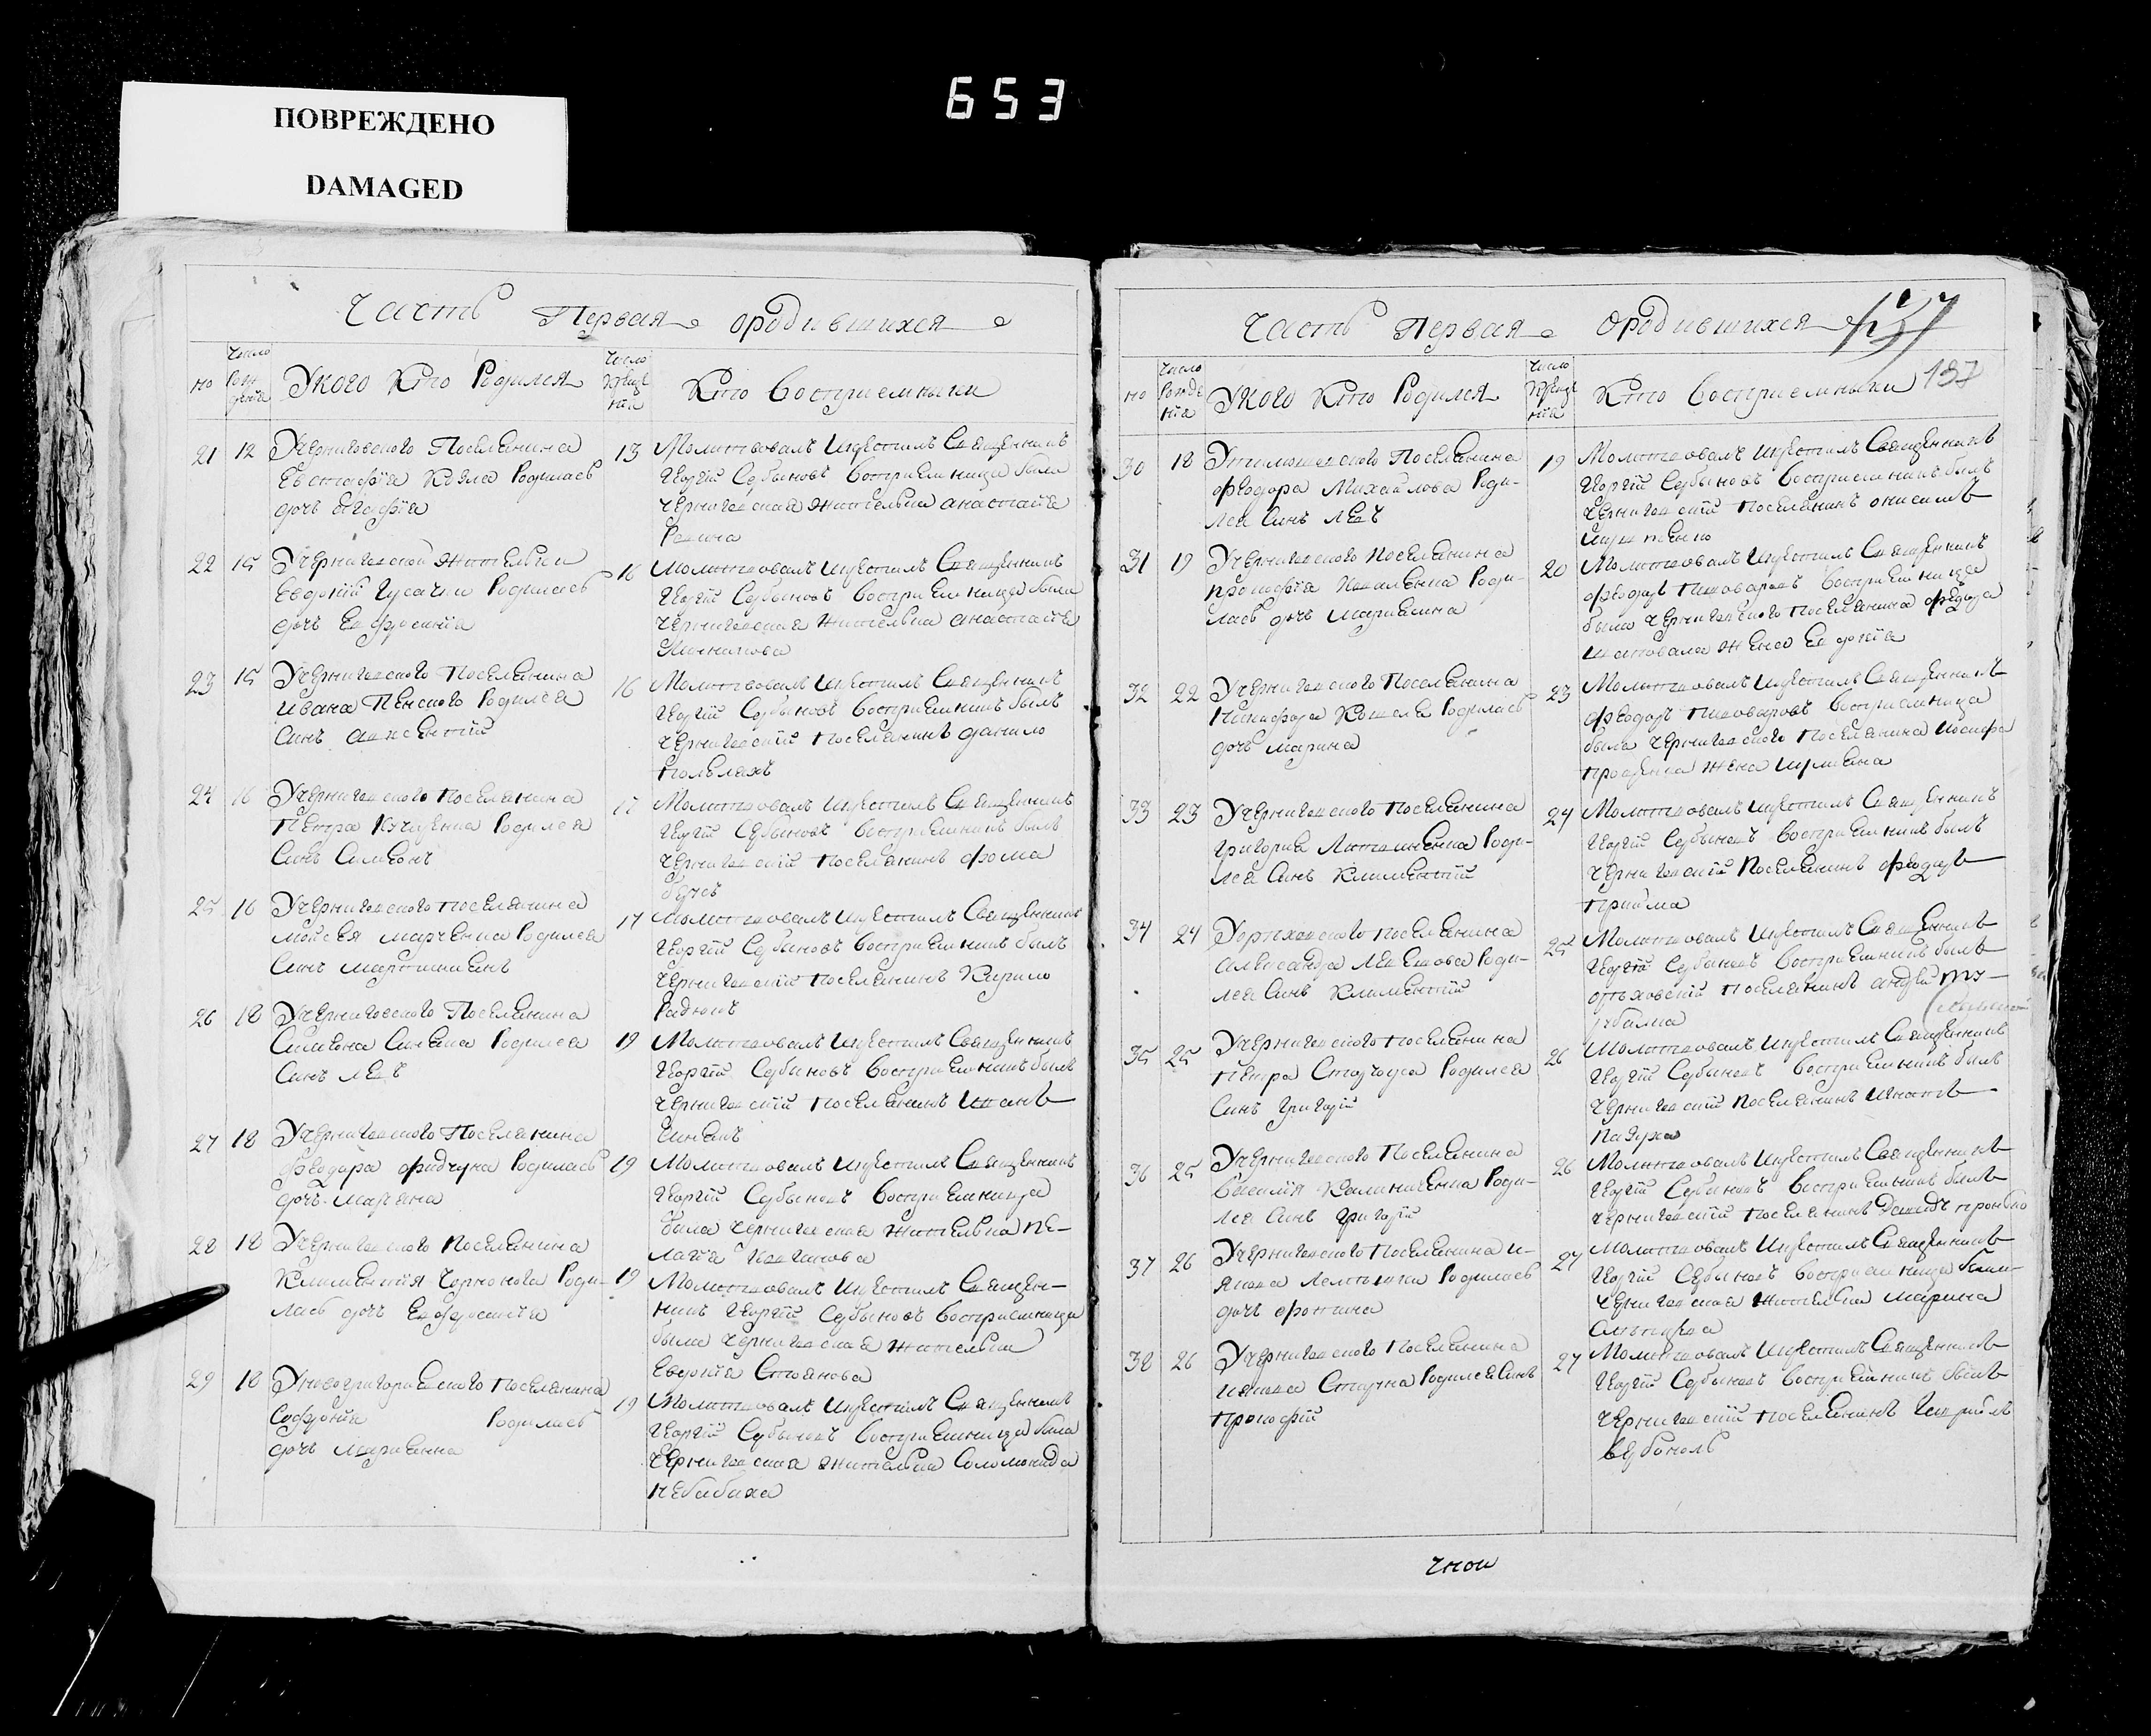 653
ПОВРЕЖДЕНО
DAMAGED
Часть Первая ородившихся
но
Число Рождения
У кого Кто Родился
Число Крещения
Кто Восприемники
21 12 У Черниговского Поселянина
Евстафія Козла Родилась
дочь Агафія
13 Молитвовалъ И крестилъ Священникъ
Георгій Сербыновъ восприемница была
Черниговская жителька анастасія
22 15 У Черниговской жительки
Евдокіи Гусачки Родилась
дочь Евфросинія
16 Молитвовалъ И крестилъ Священникъ
Георгій Сербыновъ восприемница была
Черниговская жителька анастасія
23 15 У Черниговского Поселянина
Ивана Пенского Родился
Синъ Авксентій
16 Молитвовалъ И крестилъ Священникъ
Георгій Сербыновъ восприемникъ былъ
Черниговскій Поселянинъ данило
24 16 У Черниговского Поселянина
Петра Кучеренка Родился
Синъ Симеонъ
17 Молитвовалъ И крестилъ Священникъ
Георгій Сербыновъ восприемникъ былъ
Черниговскій Поселянинъ фома
25 16 У Черниговского поселянина
Мойсея Марченка Родился
Синъ Мартиніянъ
17 Молитвовалъ И крестилъ Священникъ
Георгій Сербыновъ восприемникъ былъ
Черниговскій Поселянинъ Кирило
Радюкъ
26 18 У Черниговского Поселянина
Симеона Синяка Родился
Синъ Левъ
19 Молитвовалъ И крестилъ Священникъ
Георгій Сербиновъ восприемникъ былъ
Черниговскій Поселянинъ Иванъ
Синякъ
27 18 У Черниговского Поселянина
феодора фидчуна Родилась
дочь Марьяна
19 Молитвовалъ И крестилъ Священникъ
Георгій Сербыновъ восприемница
была Черниговская жителька пе-
лагія Иванова
28 18 У Черниговского Поселянина
Климентія Чорнонога Роди-
лась дочь Евфросинія
19 Молитвовалъ И крестилъ Священ-
никъ Георгій Сербыновъ восприемница
была Черниговская жителька
Евдокія Стоянова
29 18 У Новогригориевского Поселянина
Софронія Родилась
дочь Марианна
19 Молитвовалъ И крестилъ Священникъ
Георгій Сербыновъ восприемница была
Черниговская жителька Соломонида
Небабиха
Часть Первая ородившихся
137
но
Число Рожденія
У кого Кто Родился
Число Крещенія
Кто Восприемники
30 18 Поселянина
феодора Михайлова Роди-
лся Синъ Левъ
19 Молитвовалъ И крестилъ Священникъ
Георгій Сербыновъ восприемникъ былъ
Черниговскій Поселянинъ онисимъ
31 19 У Черниговского Поселянина
Прокофія Коваленка Роди-
лась дочь Мариамна
20 Молитвовалъ И крестилъ Священникъ
феодоръ Пивоваровъ восприемница
была Черниговского Поселянина феодора
Шаповала жена Евдокія
32 22 У Черниговского Поселянина
Никифора Кошеля Родилась
дочь Марина
23 Молитвовалъ И крестилъ Священникъ
феодоръ Пивоваровъ восприемница
была Черниговского Поселянина Иосифа
Проценка жена Иулиана
33 23 У Черниговского Поселянина
Григория Литвиненка Роди-
лся Синъ Климентій
24 Молитвовалъ И крестилъ Священникъ
Георгій Сербыновъ восприемникъ былъ
Черниговскій Поселянинъ феодоръ
Прийма
34 24 У орѣховского поселянина
Александра Левшова Роди-
лся Синъ Климентій
25 Молитвовалъ И крестилъ Священникъ
Георгій Сербыновъ восприемникъ былъ
орѣховскій Поселянинъ андрей
35 25 У Черниговского Поселянина
Петра Старчуса Родился
Синъ Григорій
26 Молитвовалъ И крестилъ Священникъ
Георгій Сербыновъ восприемникъ былъ
Черниговскій Поселянинъ Игнатъ
36 25 У Черниговского Поселянина
Василія Калиниченка Роди-
лся Синъ Григорій
26 Молитвовалъ И крестилъ Священникъ
Георгій Сербыновъ восприемникъ былъ
Черниговскій Поселянинъ Давидъ
37 26 У Черниговского Поселянина И-
якова Лемишки Родилась
дочь фотина
27 Молитвовалъ И крестилъ Священникъ
Георгій Сербыновъ восприемница была
Черниговская жителька Марина
38 26 У Черниговского Поселянина
Иякова Родился Синъ
Прокофій
27 Молитвовалъ И крестилъ Священникъ
Георгій Сербыновъ восприемникъ былъ
Черниговскій Поселянинъ Гавріилъ